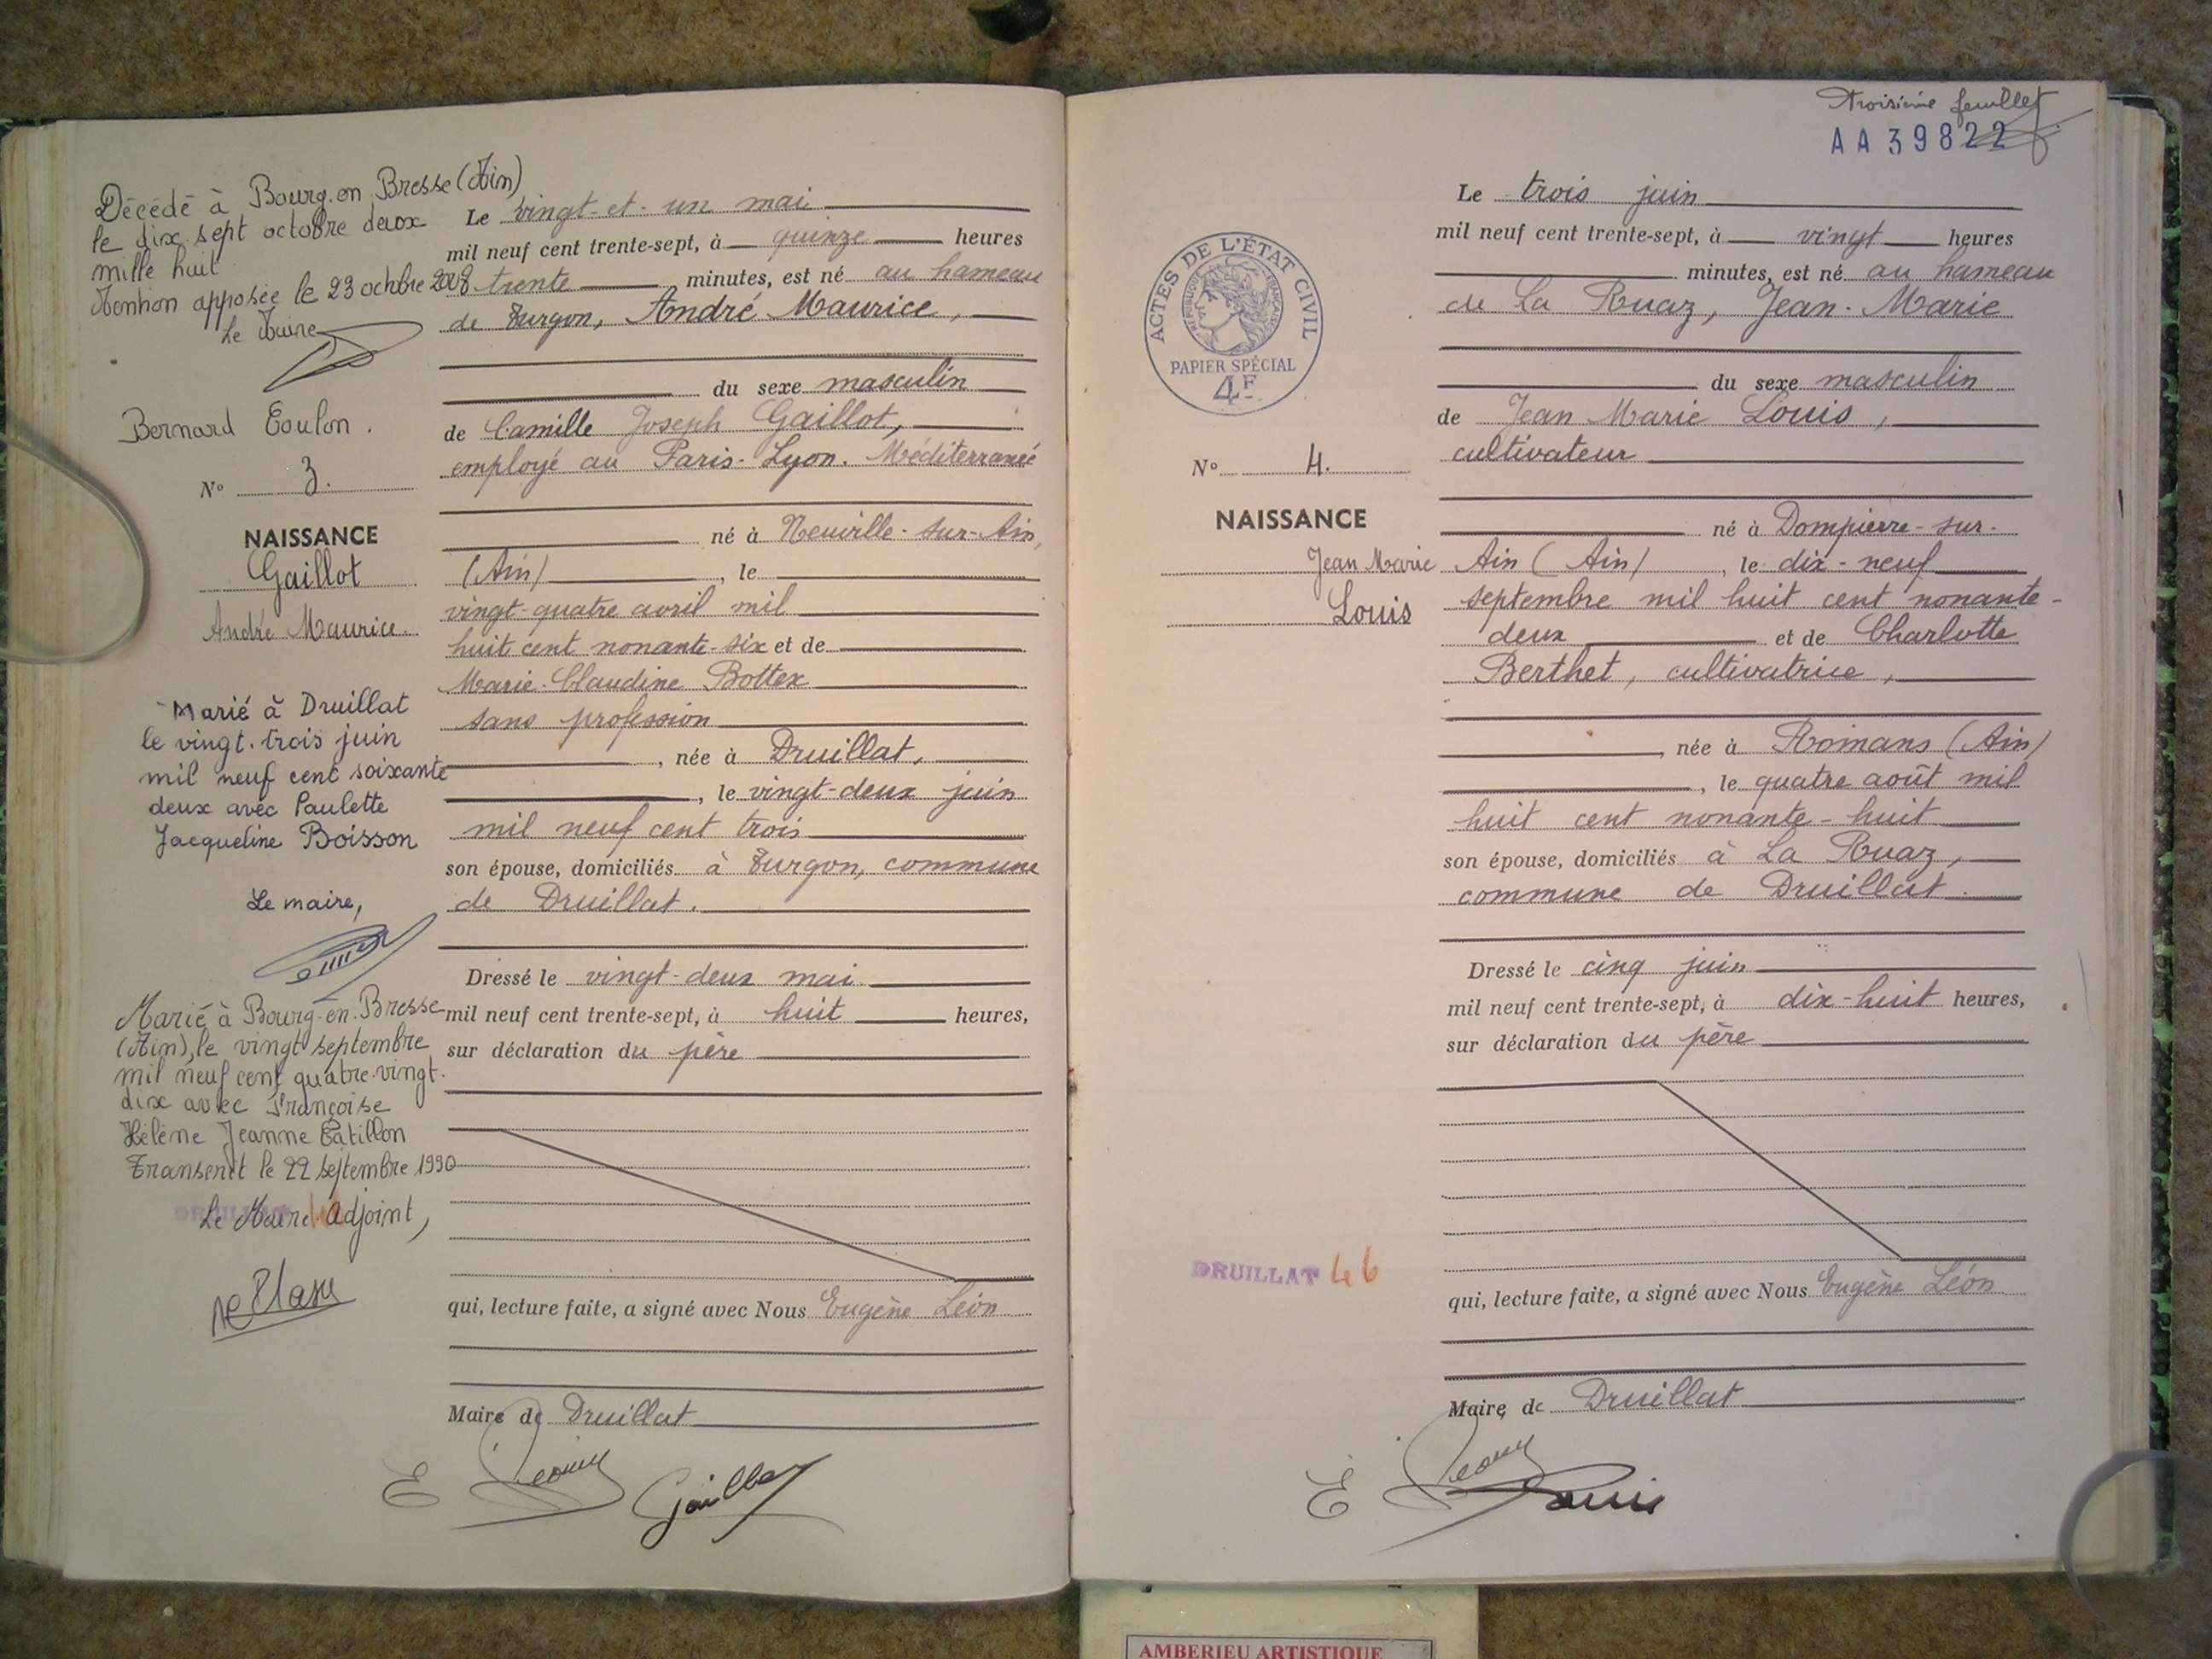 Décédé à Bourg-en-Bresse (Ain)
le dix-sept octobre deux
mille huit
Mention apposée le 23 octobre 2008
Le Maire
Bernard Toulon.
N° 3.
NAISSANCE
Gaillot
André Maurice.
Marié à Druillat
le vingt-trois juin
mil neuf cent soixante
deux avec Paulette
Jacqueline Boisson
Le maire,
Marié à Bourg-en-Bresse
(Ain), le vingt septembre
mil neuf cent quatre-vingt-
dix avec Françoise
Hélène Jeanne Catillon
Transcrit le 22 septembre 1990
Le Maire adjoint,
Le vingt-et-un mai
mil neuf cent trente-sept, à quinze heures
trente minutes, est né au hameau
de Turgon, André Maurice,
du sexe masculin
de Camille Joseph Gaillot,
employé au Paris-Lyon-Méditerranée
né à Neuville-sur-Ain,
(Ain), le
vingt-quatre avril mil
huit cent nonante-six et de
Marie-Claudine Bottex
sans profession
, née à Druillat,
, le vingt-deux juin
mil neuf cent trois
son épouse, domiciliés à Turgon, commune
de Druillat.
Dressé le vingt-deux mai
mil neuf cent trente-sept, à huit heures,
sur déclaration du père
qui, lecture faite, a signé avec Nous Eugène Léon
Maire de Druillat
E Léon Gaillot
Troisième feuillet
AA39822
ACTES DE L'ÉTAT CIVIL
RÉPUBLIQUE FRANÇAISE
PAPIER SPÉCIAL
4F
N° 4.
NAISSANCE
Jean Marie
Louis
DRUILLAT 46
Le trois juin
mil neuf cent trente-sept, à vingt heures
minutes, est né au hameau
de La Ruaz, Jean-Marie
du sexe masculin
de Jean Marie Louis,
cultivateur
né à Dompierre-sur-
Ain (Ain), le dix-neuf
septembre mil huit cent nonante-
deux et de Charlotte
Berthet, cultivatrice,
, née à Romans (Ain)
, le quatre août mil
huit cent nonante-huit
son épouse, domiciliés à La Ruaz,
commune de Druillat.
Dressé le cinq juin
mil neuf cent trente-sept, à dix-huit heures,
sur déclaration du père
qui, lecture faite, a signé avec Nous Eugène Léon
Maire de Druillat
E Léon Louis
AMBERIEU ARTISTIQUE